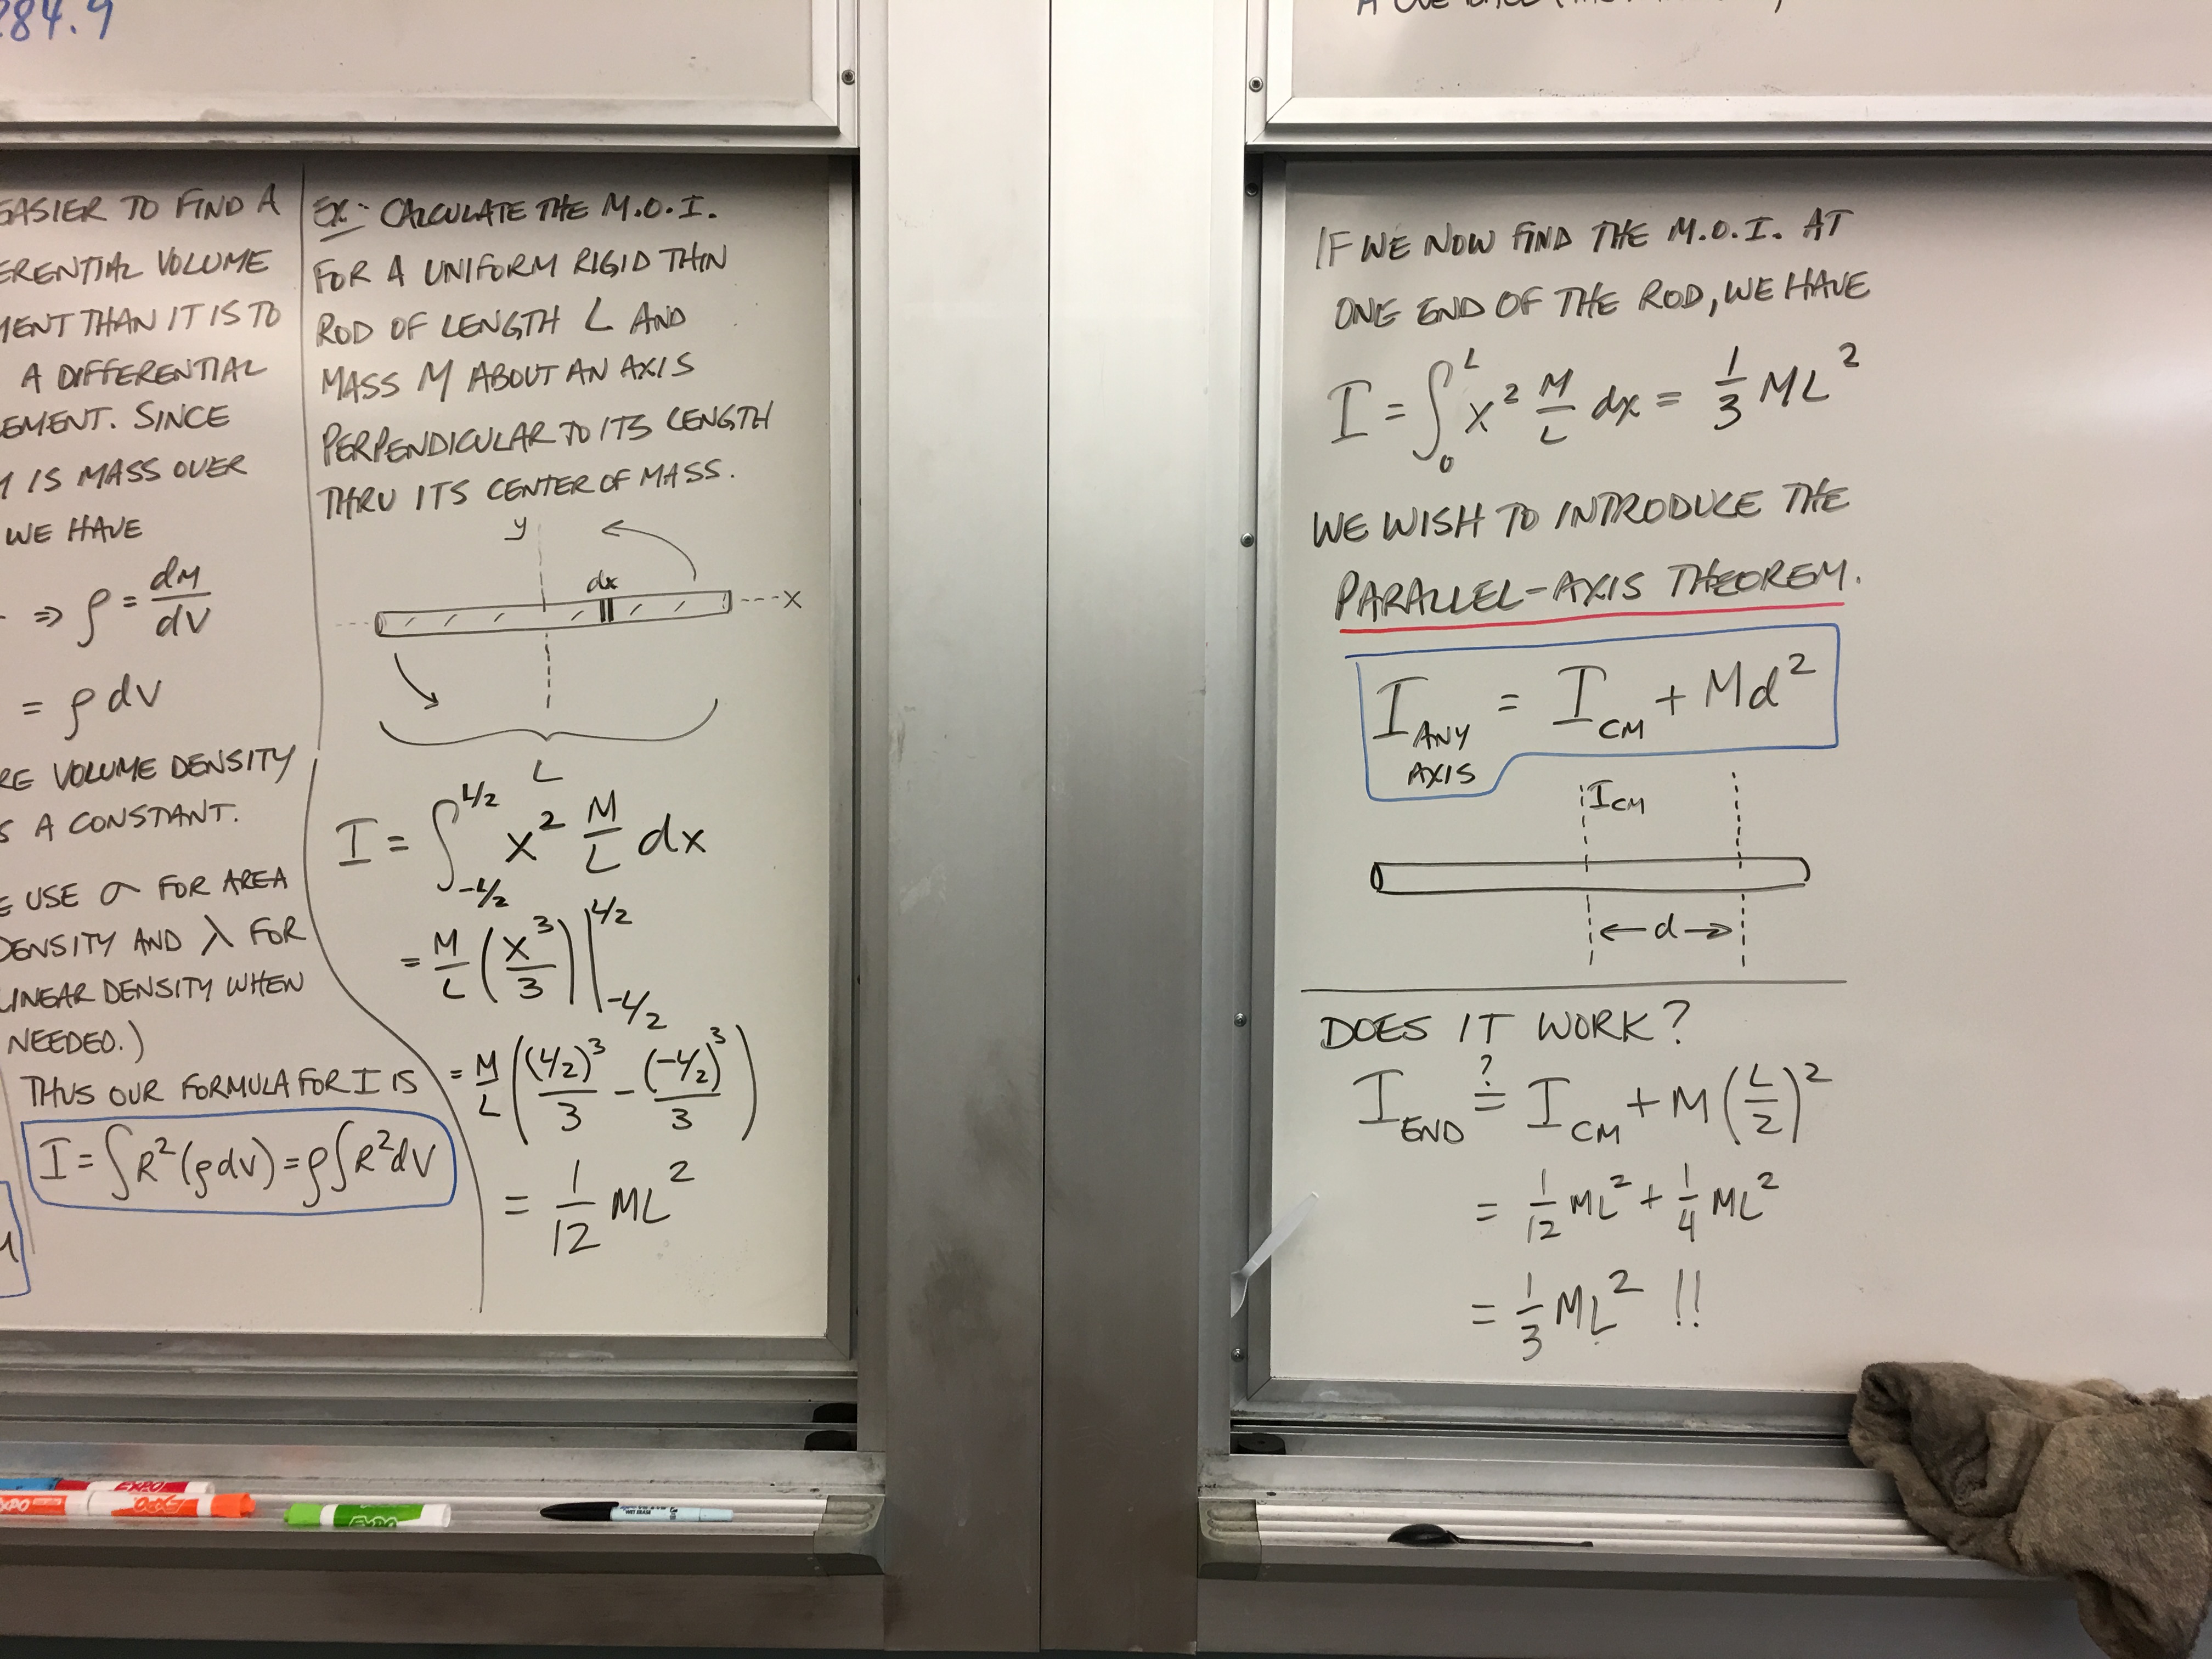 284.9
EASIER TO FIND A
ERENTIAL VOLUME
MENT THAN IT IS TO
A DIFFERENTIAL
EMENT. SINCE
M IS MASS OVER
WE HAVE
⇒ ρ = dM/dV
= ρ dV
RE VOLUME DENSITY
S A CONSTANT.
E USE σ FOR AREA
DENSITY AND λ FOR
LINEAR DENSITY WHEN
NEEDED.)
THUS OUR FORMULA FOR I IS
I = ∫R²(ρdV) = ρ∫R²dV
EX: CALCULATE THE M.O.I.
FOR A UNIFORM RIGID THIN
ROD OF LENGTH L AND
MASS M ABOUT AN AXIS
PERPENDICULAR TO ITS LENGTH
THRU ITS CENTER OF MASS.
y
dx
x
L
I = ∫_{-L/2}^{L/2} x² M/L dx
= M/L (x³/3) |_{-L/2}^{L/2}
= M/L ((L/2)³/3 - (-L/2)³/3)
= 1/12 ML²
IF WE NOW FIND THE M.O.I. AT
ONE END OF THE ROD, WE HAVE
I = ∫_0^L x² M/L dx = 1/3 ML²
WE WISH TO INTRODUCE THE
PARALLEL-AXIS THEOREM.
I_{ANY AXIS} = I_{CM} + Md²
I_{CM}
← d →
DOES IT WORK?
I_{END} ≟ I_{CM} + M(L/2)²
= 1/12 ML² + 1/4 ML²
= 1/3 ML² !!
EXPO
EXPO
EXPO
EXPO
WET ERASE